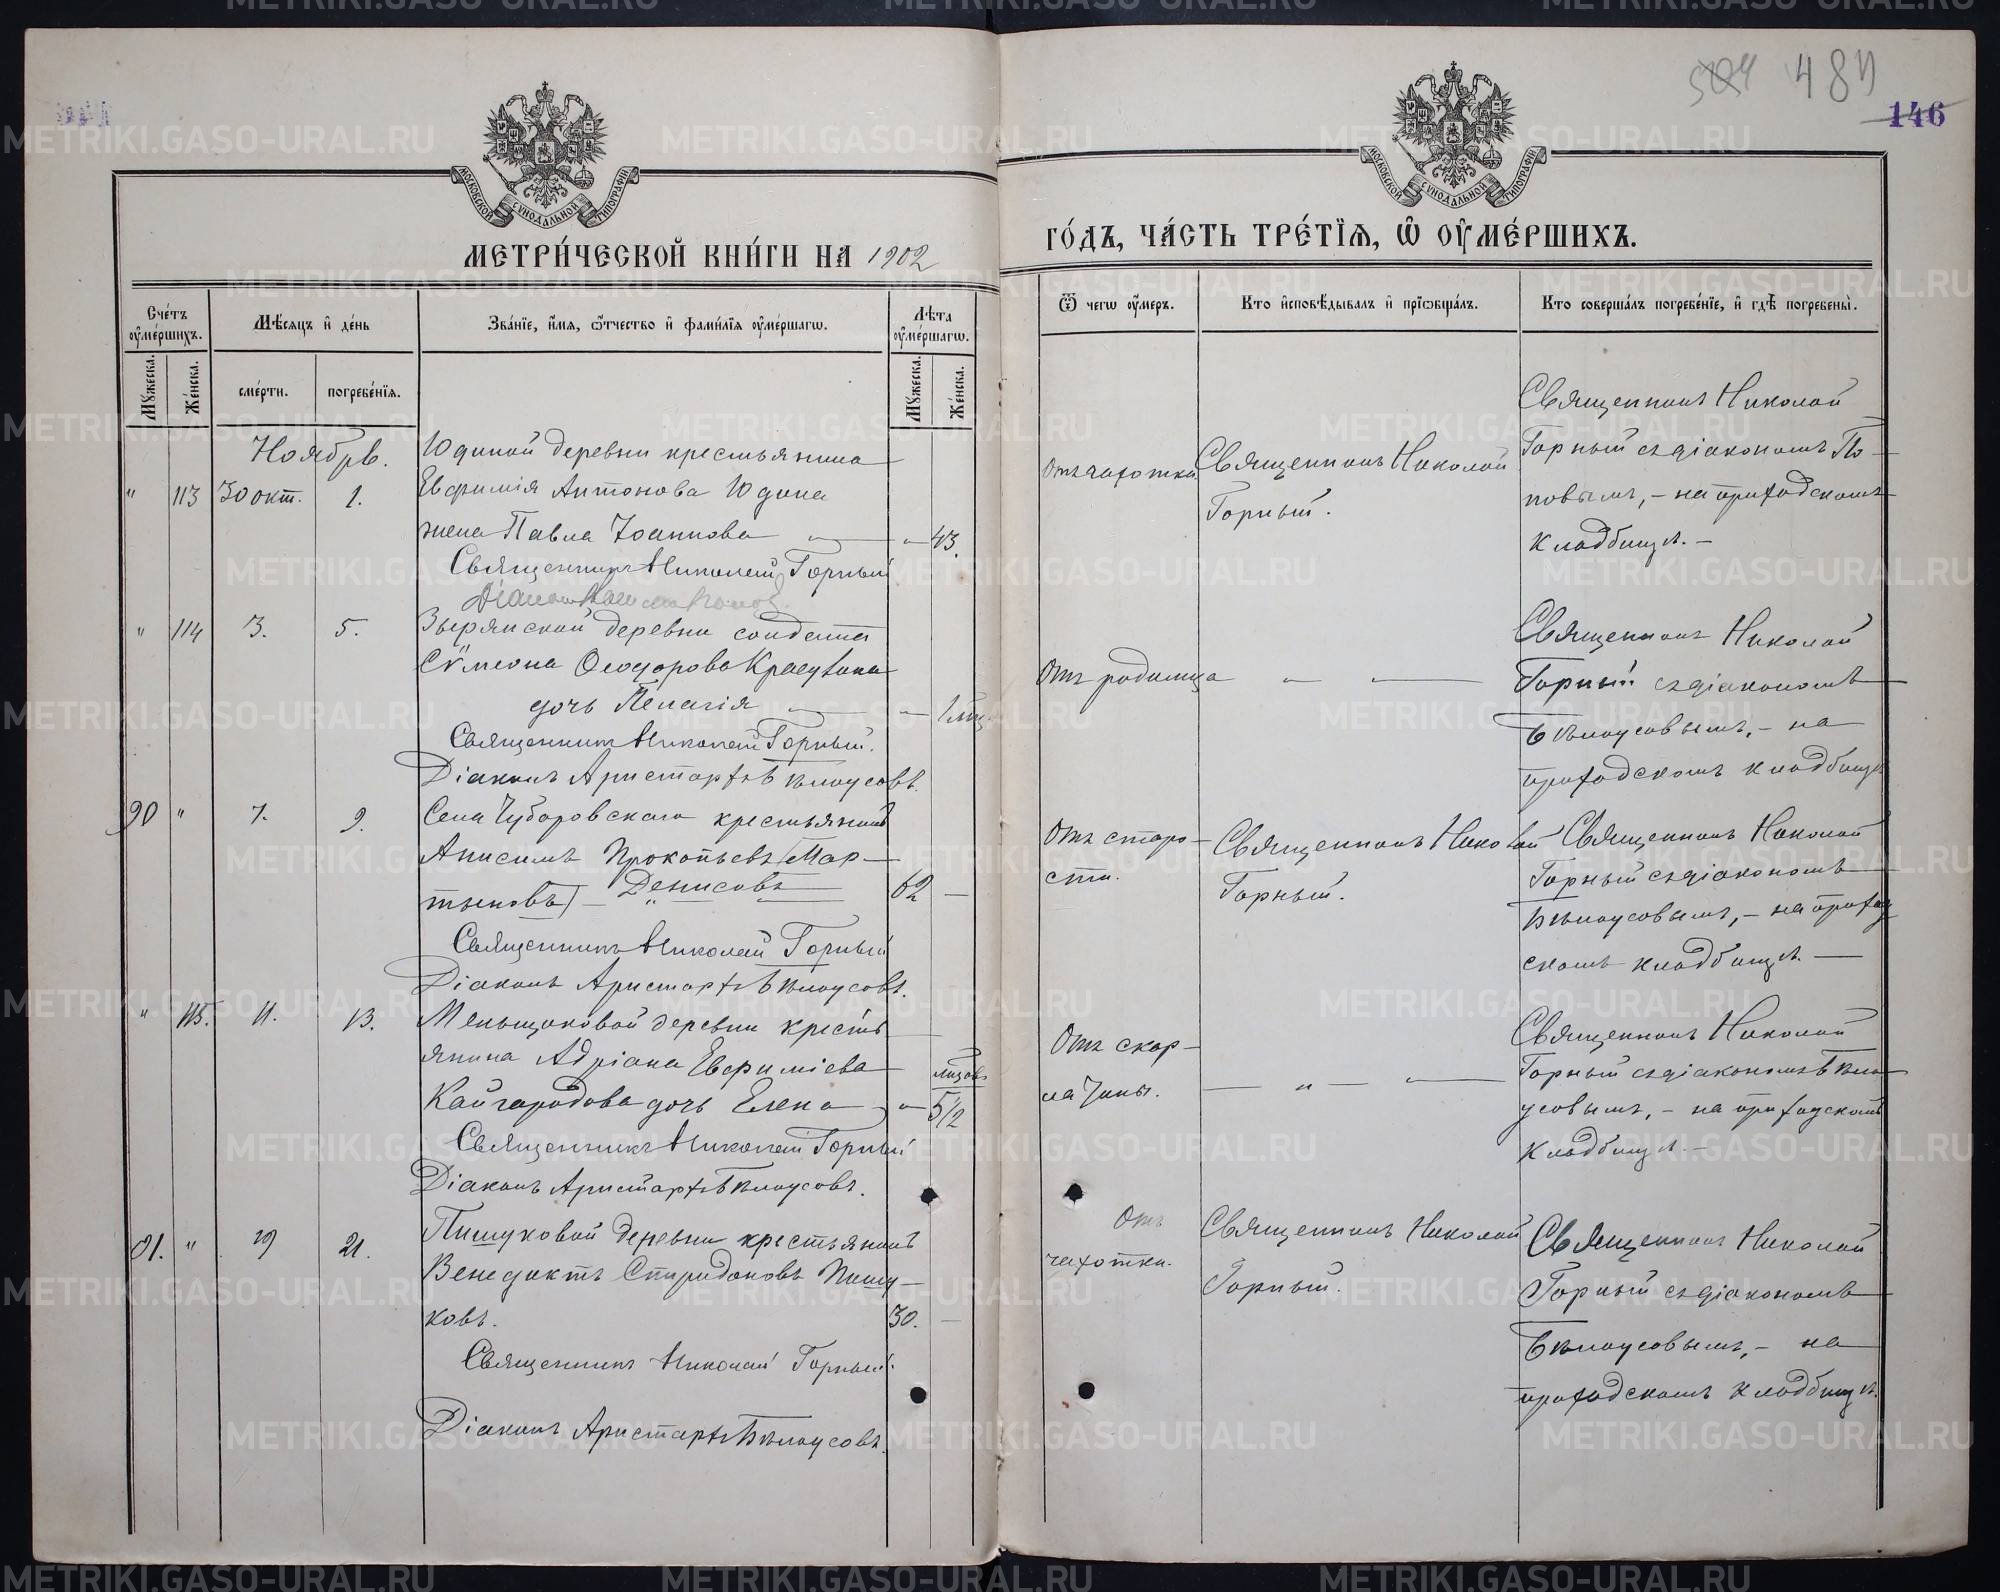 504 489
146
МОСКОВСКОЙ СѴНОДАЛЬНОЙ ТИПОГРАФІИ
МОСКОВСКОЙ СѴНОДАЛЬНОЙ ТИПОГРАФІИ
МЕТРИ́ЧЕСКОЙ КНИ́ГИ НА 1902
ГО́ДЪ, ЧА́СТЬ ТРЕ́ТЇѦ, Ѡ҆ ОУ҆МЕ́РШИХЪ.
Сче́тъ оу҆ме́ршихъ.
Мѣ́сяцъ и҆ де́нь
Зва́нїе, и҆́мѧ, ѻ҆́тчество и҆ фами́лїѧ оу҆ме́ршагѡ.
Лѣ́та оу҆ме́ршагѡ.
Мꙋ́жеска.
Же́нска.
сме́рти.
погребе́нїѧ.
Мꙋ́жеска.
Же́нска.
Ѿ чегѡ̀ оу҆́меръ.
Кто̀ и҆сповѣ́дывалъ и҆ прїѡбща́лъ.
Кто̀ соверша́лъ погребе́нїе, и҆ гдѣ̀ погребены̀.
Ноябрь.
" 113 30 окт. 1.
Юдиной деревни крестьянина
Евфимія Антонова Юдина
жена Павла Іоаннова — " 43.
Священникъ Николай Горный
Отъ чахотки
Священникъ Николай
Горный.
Священникъ Николай
Горный съ діакономъ По-
повымъ, - на приходскомъ
кладбищѣ. -
" 114 3. 5.
Зырянской деревни солдата
Сѵмеона Ѳеодорова
дочь Пелагія — " 1 мѣс.
Священникъ Николай Горный.
Діаконъ Аристархъ Бѣлоусовъ.
Отъ родимца — " —
Священникъ Николай
Горный съ діакономъ
Бѣлоусовымъ, - на
приходскомъ кладбищѣ
90 " 7. 9.
Села Чубаровскаго крестьянинъ
Анисимъ Прокопьевъ (Мар-
тыновъ) - Денисовъ 62 —
Священникъ Николай Горный
Діаконъ Аристархъ Бѣлоусовъ.
Отъ старо-
сти.
Священникъ Николай
Горный.
Священникъ Николай
Горный съ діакономъ
Бѣлоусовымъ, - на приход
скомъ кладбищѣ. —
" 115. 11. 13.
Меньщиковой деревни кресть
янина Адріана Евфиміева
Кайгородова дочь Елена — " мѣсяц. 5 1/2
Священникъ Николай Горный
Діаконъ Аристархъ Бѣлоусовъ.
Отъ скар-
латины.
— " —
Священникъ Николай
Горный съ діакономъ Бѣло
усовымъ, - на приходскомъ
кладбищѣ. -
91. " 19 21.
Пишуковой деревни крестьянинъ
Венедиктъ Спиридоновъ Пишу-
ковъ. 30. —
Священникъ Николай Горный.
Діаконъ Аристархъ Бѣлоусовъ.
Отъ
чахотки.
Священникъ Николай
Горный.
Священникъ Николай
Горный съ діакономъ
Бѣлоусовымъ, - на
приходскомъ кладбищѣ.
METRIKI.GASO-URAL.RU